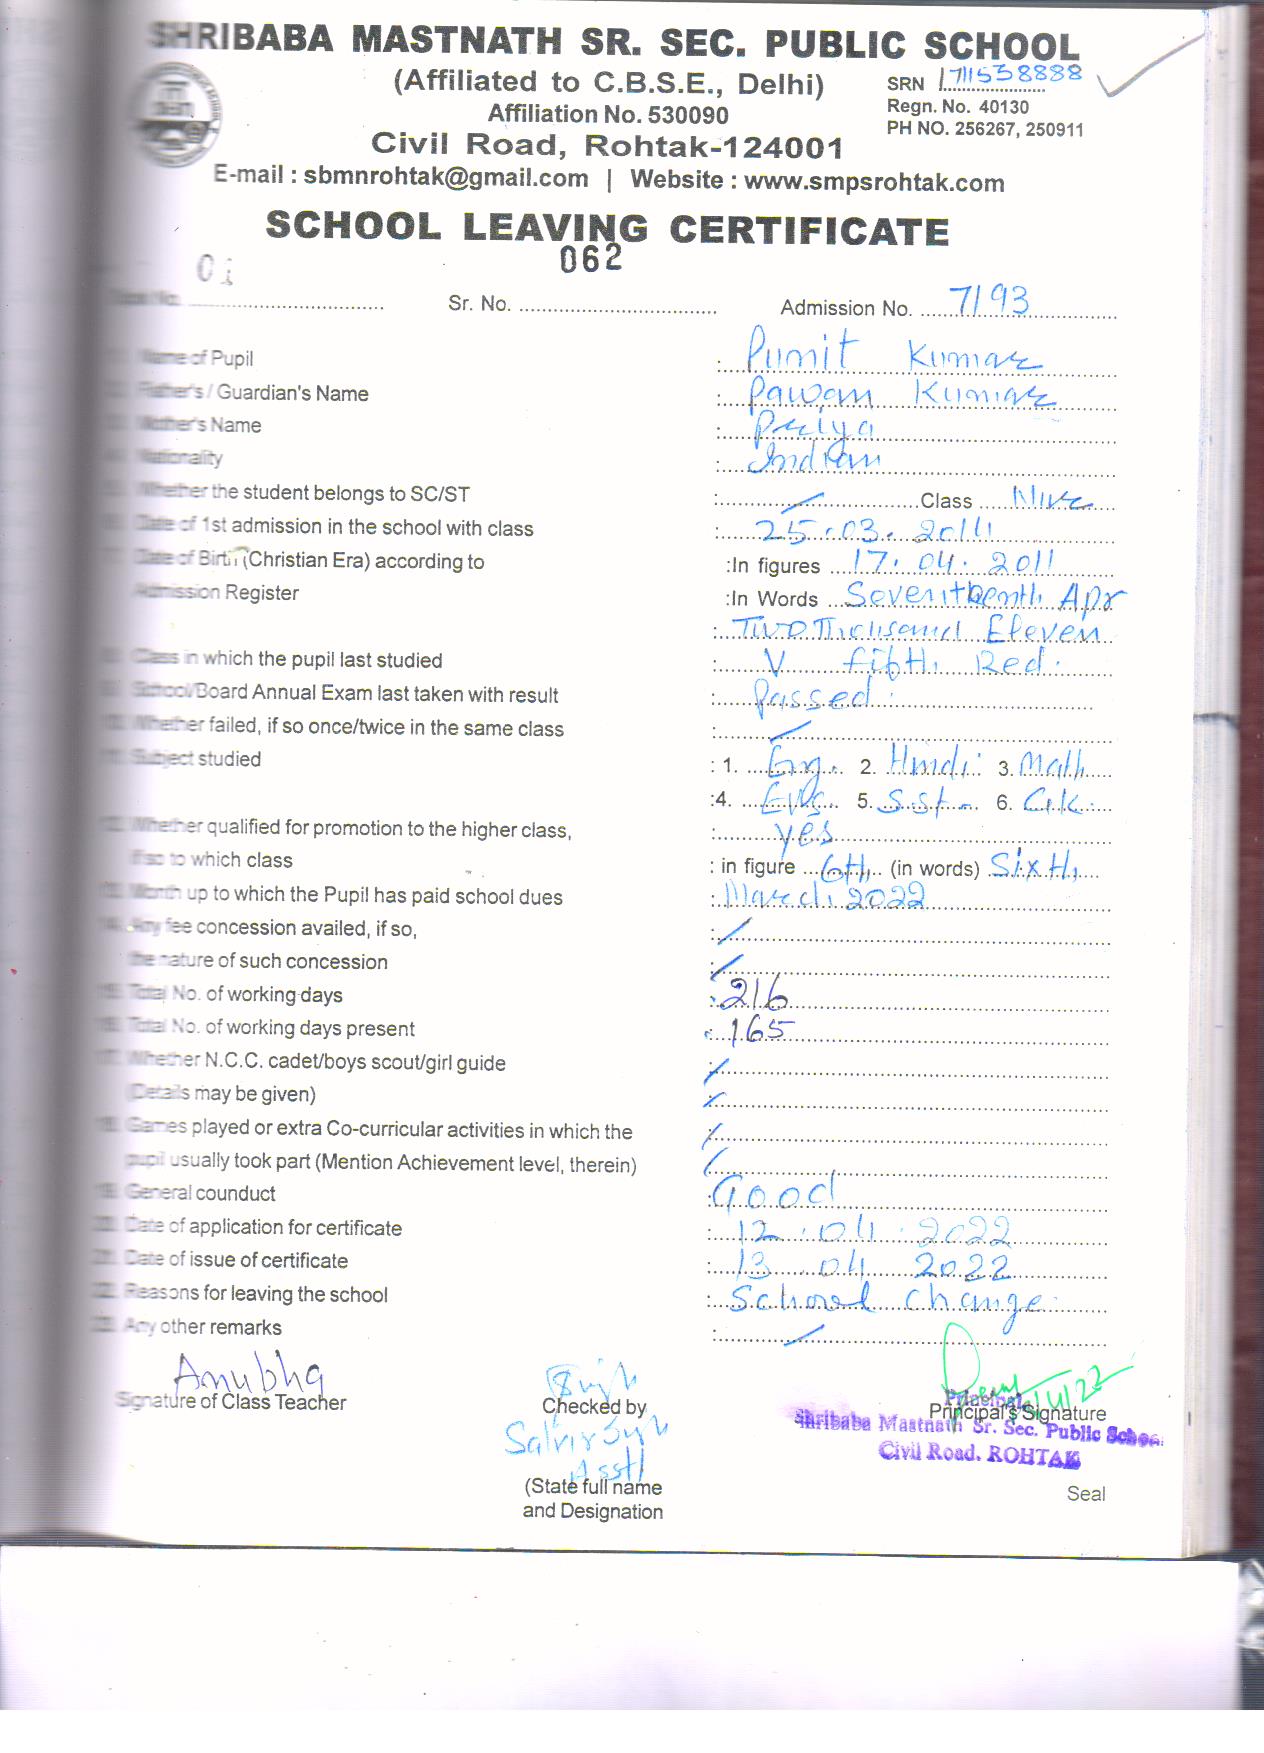 SHRIBABA MASTNATH SR. SEC. PUBLIC SCHOOL
(Affiliated to C.B.S.E., Delhi)
SRN 1711538888
Affiliation No. 530090
Regn. No. 40130
Civil Road, Rohtak-124001
PH NO. 256267, 250911
E-mail : sbmnrohtak@gmail.com | Website : www.smpsrohtak.com
SCHOOL LEAVING CERTIFICATE
062
Sr. No. Admission No. 7193
Name of Pupil : Punit Kumar
Father's / Guardian's Name : Pawan Kumar
Mother's Name : Priya
Nationality : Indian
Whether the student belongs to SC/ST : Class
Date of 1st admission in the school with class : 25.03.
Date of Birth (Christian Era) according to :In figures 17.04.2011
Admission Register :In Words Seventeenth Apr
: Two Thousand Eleven
Class in which the pupil last studied : V fifth Red.
School/Board Annual Exam last taken with result : Passed.
Whether failed, if so once/twice in the same class :
Subject studied : 1. Eng. 2. Hindi 3. Math
:4. EVS 5. S.St. 6. G.K.
Whether qualified for promotion to the higher class, : yes
if so to which class : in figure 6th (in words) Sixth
Month up to which the Pupil has paid school dues : March 2022
Any fee concession availed, if so, :
the nature of such concession :
Total No. of working days : 216
Total No. of working days present : 165
Whether N.C.C. cadet/boys scout/girl guide :
(Details may be given)
Games played or extra Co-curricular activities in which the
pupil usually took part (Mention Achievement level, therein)
General counduct : Good
Date of application for certificate : 12.04.2022
Date of issue of certificate : 13 04 2022
Reasons for leaving the school : School Change.
Any other remarks :
Anubha
Signature of Class Teacher
Checked by
Principal
Principal's Signature
Shribaba Mastnath Sr. Sec. Public School
Civil Road. ROHTAK
Asstt
(State full name
and Designation
Seal